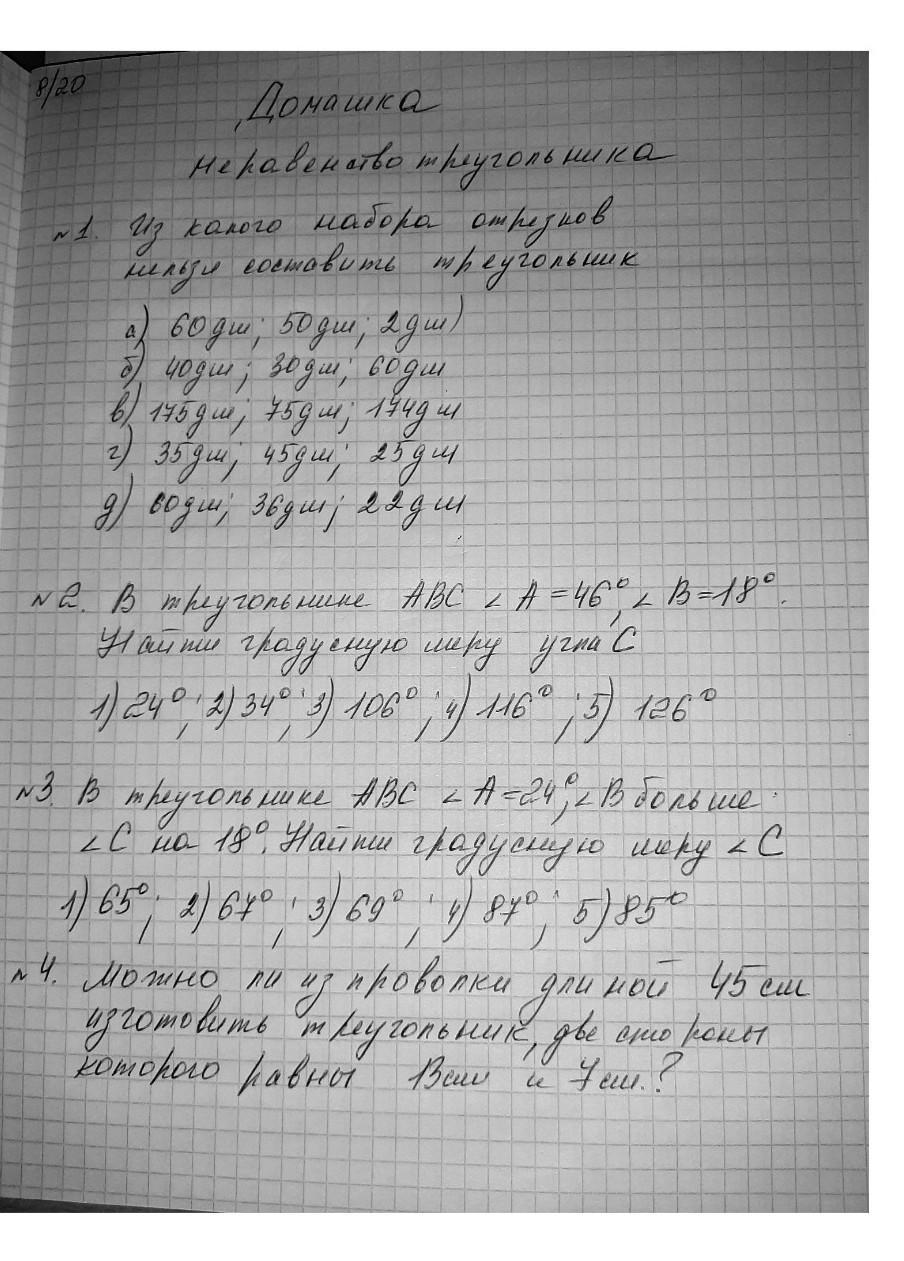 8/20
Домашка
Неравенство треугольника
№1. Из какого набора отрезков
нельзя составить треугольник
а) 60дм; 50дм; 2дм)
б) 40дм; 30дм; 60дм
в) 175дм; 75дм; 174дм
г) 35дм; 45дм; 25дм
д) 60дм; 36дм; 22дм
№2. В треугольнике ABC ∠A=46°, ∠B=18°.
Найти градусную меру угла C
1) 24°; 2) 34°; 3) 106°; 4) 116°; 5) 126°
№3. В треугольнике ABC ∠A=24°, ∠B больше
∠C на 18°. Найти градусную меру ∠C
1) 65°; 2) 67°; 3) 69°; 4) 87°; 5) 85°
№4. Можно ли из проволки длиной 45см
изготовить треугольник, две стороны
которого равны 13см и 7см.?